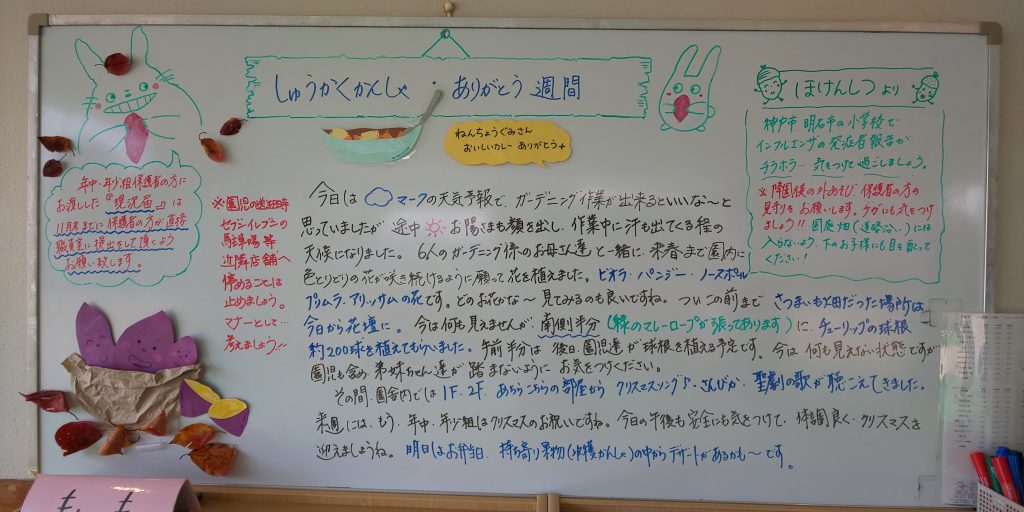 しゅうかくかんしゃ・ありがとう週間
ねんちょうぐみさん
おいしいカレー ありがとう
ほけんしつより
神戸市 明石市の小学校で
インフルエンザの発症者報告が
チラホラ… 気をつけて過ごしましょう。
※降園後の外あそび 保護者の方の
見守りをお願いします。ケガにも気をつけ
ましょう!! 園庭畑(道路沿い)には
入らないよう、下のお子様にも目を配って
ください!
年中・年少組保護者の方に
お渡しした『現況届』は
11月末までに保護者の方が直接
職員室に提出をして頂くよう
お願い致します。
※園児の送迎時
セブンイレブンの
駐車場等
近隣店舗へ
停めることは
止めましょう。
マナーとして…
考えましょう…
今日は マークの天気予報で、ガーデニング作業が出来るといいな〜と
思っていましたが 途中 お陽さまも顔を出し、作業中に汗も出てくる程の
天候になりました。6人のガーデニング係のお母さん達と一緒に、来春まで園内に
色とりどりの花が咲き続けるように願って花を植えました。ビオラ・パンジー・ノースポール
プリムラ・アリッサムの花です。どのお花かな〜 見てみるのも良いですね。ついこの前まで さつまいも畑だった場所は
今日から花壇に。今は何も見えませんが、南側半分(緑のマレーロープが張ってあります)に、チューリップの球根
約200球を植えてもらいました。午前半分は 後日、園児達が球根を植える予定です。今は 何も見えない状態ですが
園児も含め 弟妹ちゃん達が踏まないように お気をつけください。
その間、園舎内では 1F・2F、あちらこちらの部屋から クリスマスソング♪・さんびか・聖劇の歌が聴こえてきました。
来週には、もう、年中・年少組はクリスマスのお祝いですね。今日の午後も安全にも気をつけて、体調良く、クリスマスを
迎えましょうね。明日はお弁当、持ち寄り果物(収穫かんしゃ)の中からデザートがあるかも〜です。